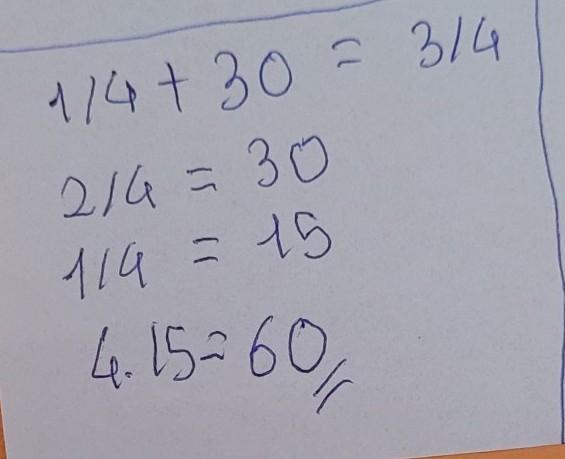 1/4 + 30 = 3/4
2/4 = 30
1/4 = 15
4.15=60